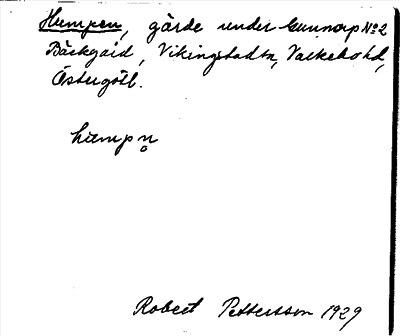 Humpen, gärde under Gunnorp No 2
Bäckgård, Vikingstad sn, Valkebo hd,
Östergötl.
humpn̥
Robert Pettersson 1929